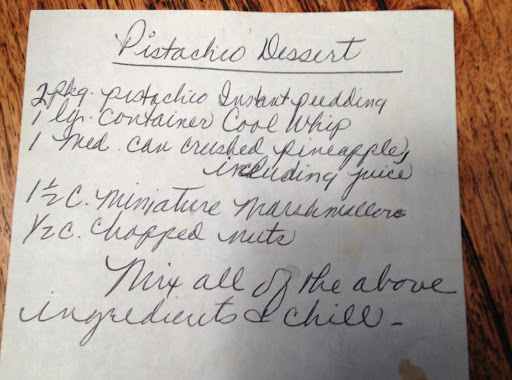 Pistachio Dessert
2 pkg. pistachio Instant pudding
1 lg. container Cool Whip
1 med. can crushed pineapple,
including juice
1 1/2 C. miniature marshmallows
1/2 C. chopped nuts
Mix all of the above
ingredients & chill -